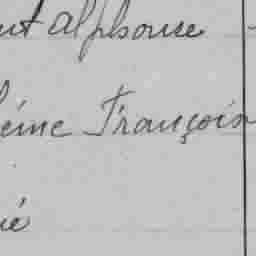 alphonse
eine François
ié